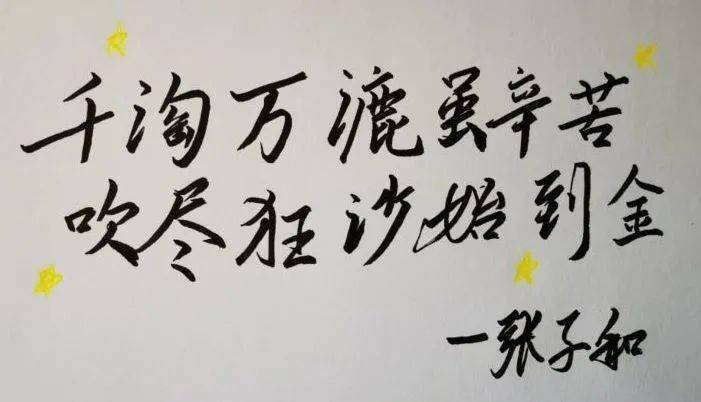 千淘万漉虽辛苦
吹尽狂沙始到金
一张子和